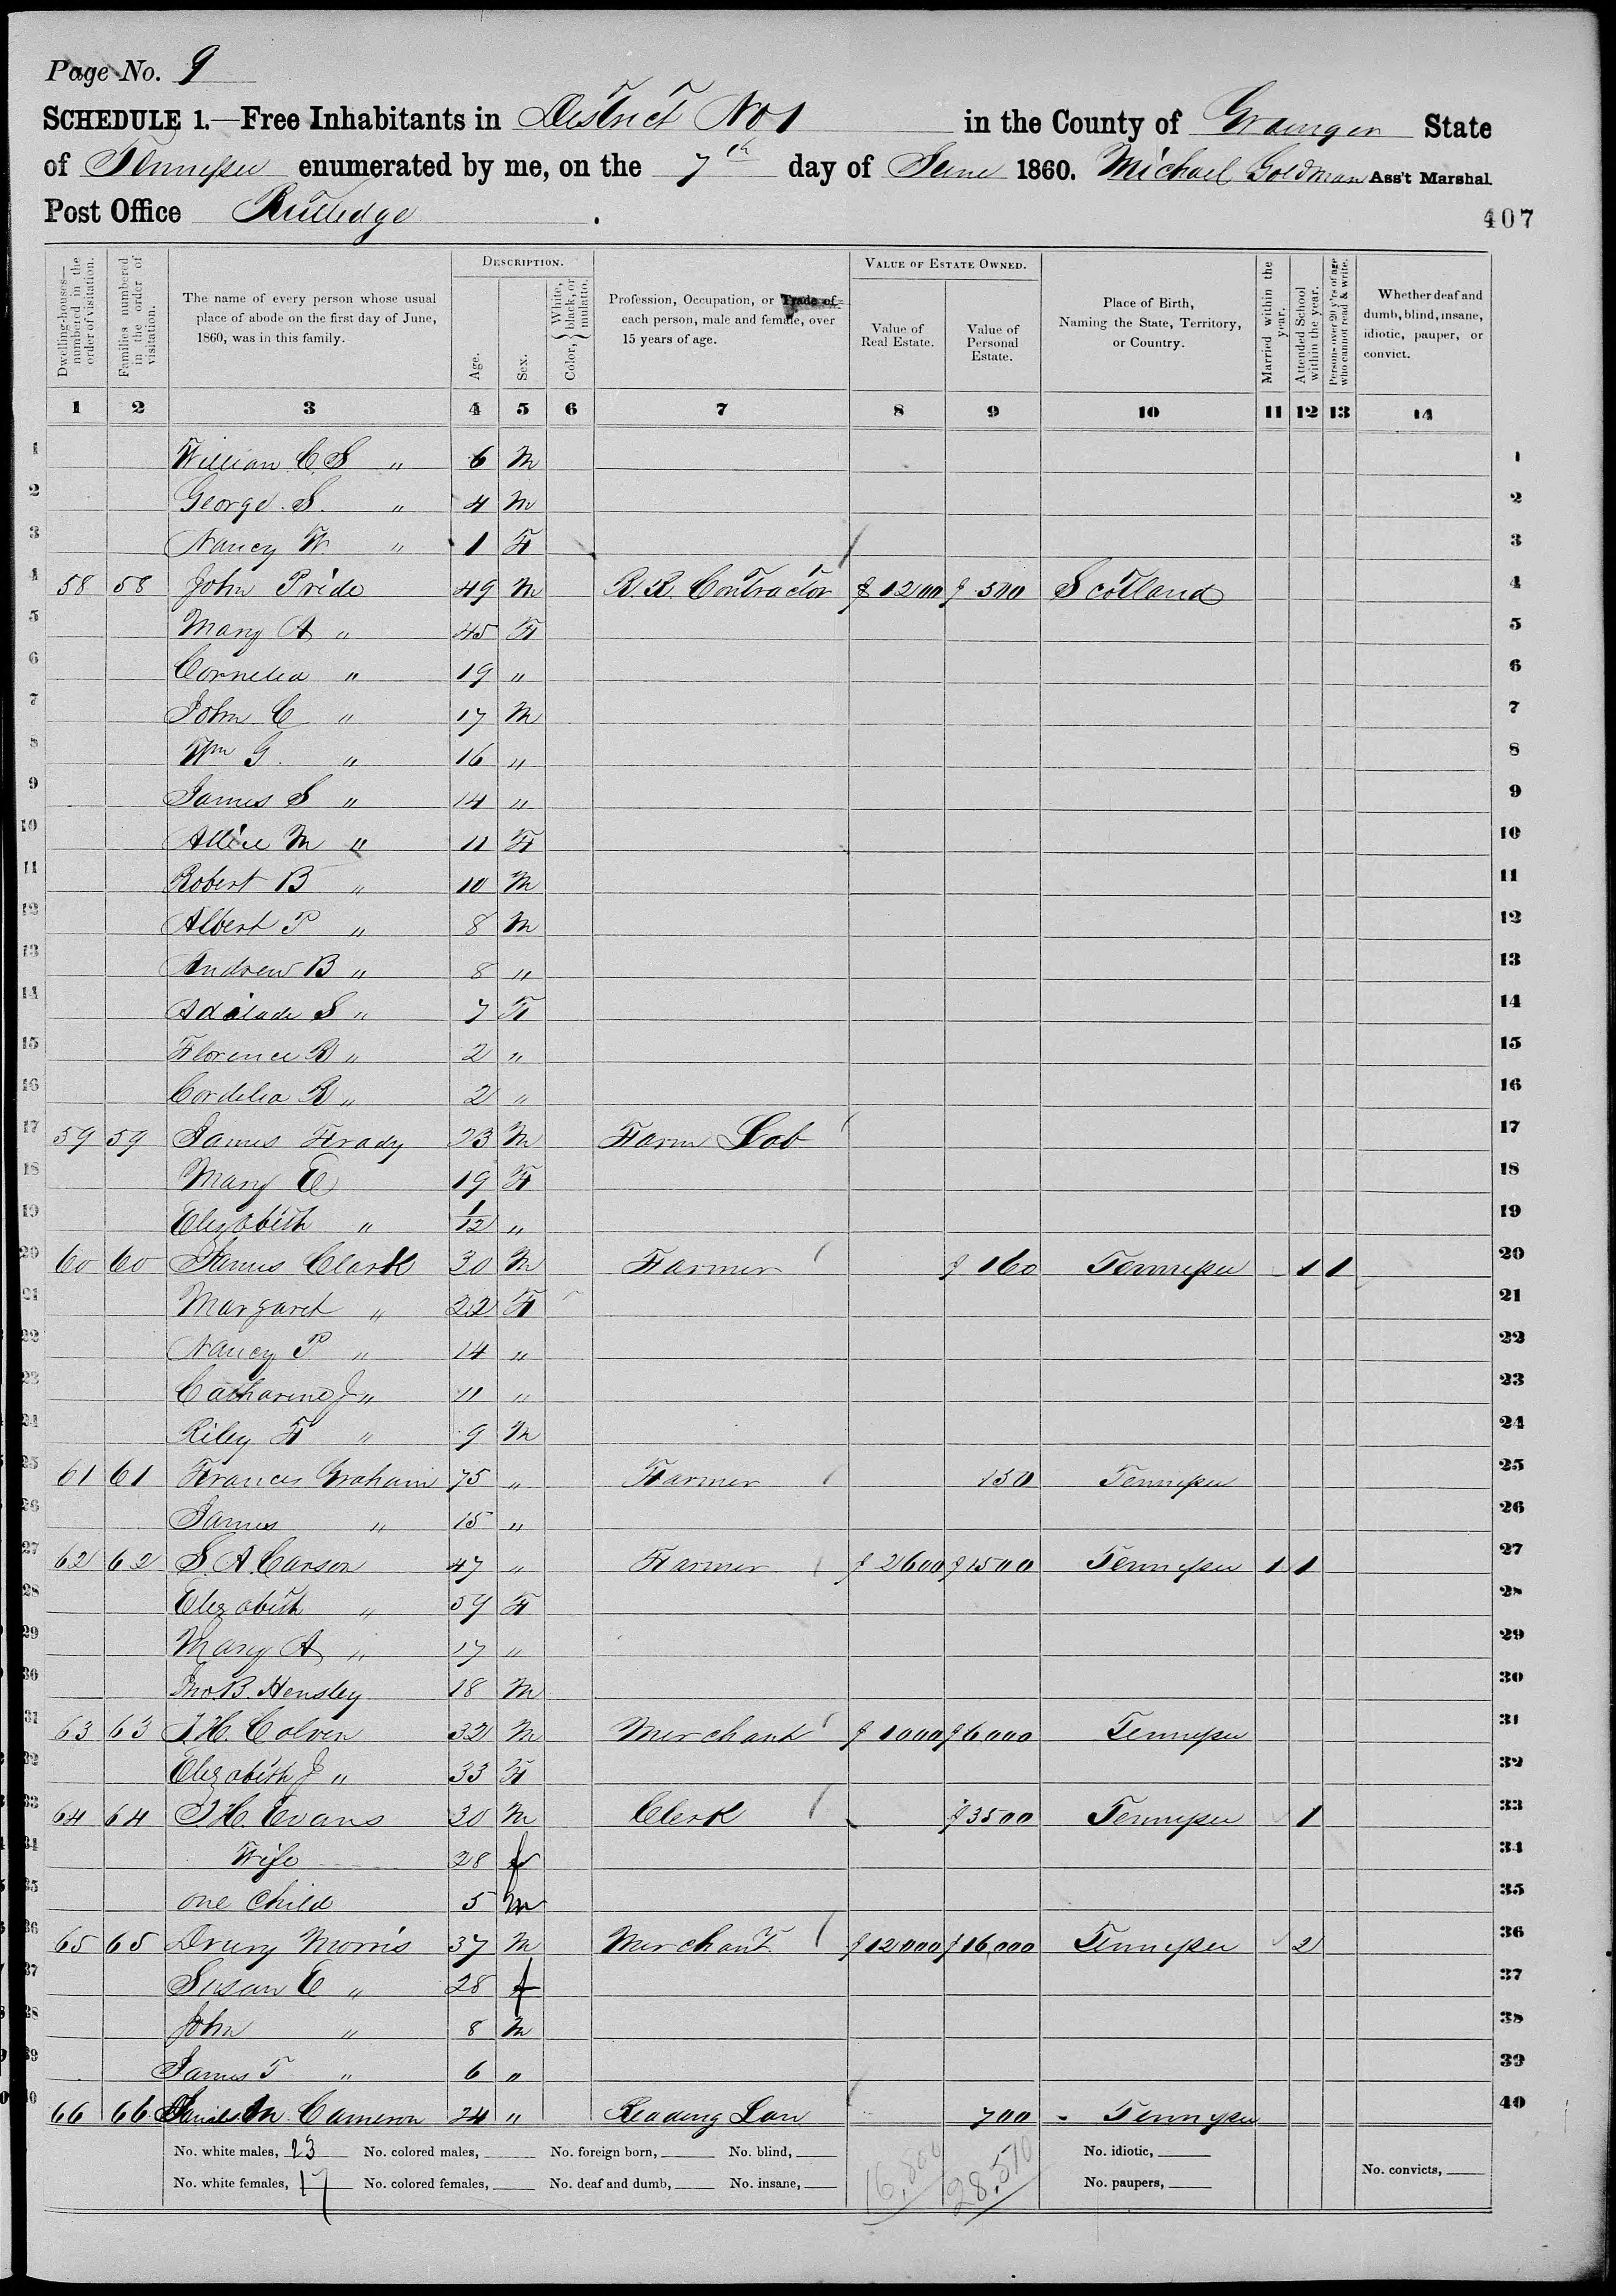 Page No. 9
SCHEDULE 1.—Free Inhabitants in District No 1 in the County of Grainger State
of Tennessee enumerated by me, on the 7th day of June 1860. Michael Goldman Ass't Marshal
Post Office Rutledge .
407
Dwelling-houses—numbered in the order of visitation. Families numbered in the order of visitation. The name of every person whose usual place of abode on the first day of June, 1860, was in this family. DESCRIPTION. Age. Sex. Color, White, black, or mulatto. Profession, Occupation, or Trade of each person, male and female, over 15 years of age. VALUE OF ESTATE OWNED. Value of Real Estate. Value of Personal Estate. Place of Birth, Naming the State, Territory, or Country. Married within the year. Attended School within the year. Persons over 20 y'rs of age who cannot read & write. Whether deaf and dumb, blind, insane, idiotic, pauper, or convict.
1 2 3 4 5 6 7 8 9 10 11 12 13 14
1 William C. S " 6 M 1
2 George. S. " 4 M 2
3 Nancy W " 1 F 3
4 58 58 John Pride 49 M R. R. Contractor $ 1200 $ 500 Scotland 4
5 Mary A " 45 F 5
6 Cornelia " 19 " 6
7 John C " 17 M 7
8 Wm G. " 16 " 8
9 James S " 14 " 9
10 Allice M " 11 F 10
11 Robert B " 10 M 11
12 Albert P " 8 M 12
13 Andrew B " 8 " 13
14 Adilade S " 7 F 14
15 Florence R " 2 " 15
16 Cordelia R " 2 " 16
17 59 59 James Frady 23 M Farm Lab 17
18 Mary E 19 F 18
19 Elizabeth " 1/12 " 19
20 60 60 James Clark 30 M Farmer $ 160 Tennessee 1 1 20
21 Margaret " 22 F 21
22 Nancy P " 14 " 22
23 Catharine J " 11 " 23
24 Riley F " 9 M 24
25 61 61 Frances Graham 75 " Farmer 150 Tennessee 25
26 James " 15 " 26
27 62 62 S. A. Carson 47 " Farmer $ 2600 $ 1500 Tennessee 1 1 27
28 Elizabeth " 59 F 28
29 Mary A " 17 " 29
30 Jno. B. Hensley 18 M 30
31 63 63 J. H. Colvin 32 M Merchant $ 1000 $ 6,000 Tennessee 31
32 Elizabeth J " 33 F 32
33 64 64 J. H. Evans 30 M Clerk $ 3500 Tennessee 1 33
34 Wife 28 f 34
35 one Child 5 M 35
36 65 65 Drury Morris 37 M Merchant $ 12000 $ 16,000 Tennessee 2 36
37 Susan E " 28 f 37
38 John " 8 M 38
39 James T " 6 " 39
40 66 66 James M. Cameron 24 " Reading Law 700 Tennessee 40
No. white males, 23 No. colored males, No. foreign born, No. blind, 16,800 28,510 No. idiotic,
No. white females, 17 No. colored females, No. deaf and dumb, No. insane, No. paupers, No. convicts,